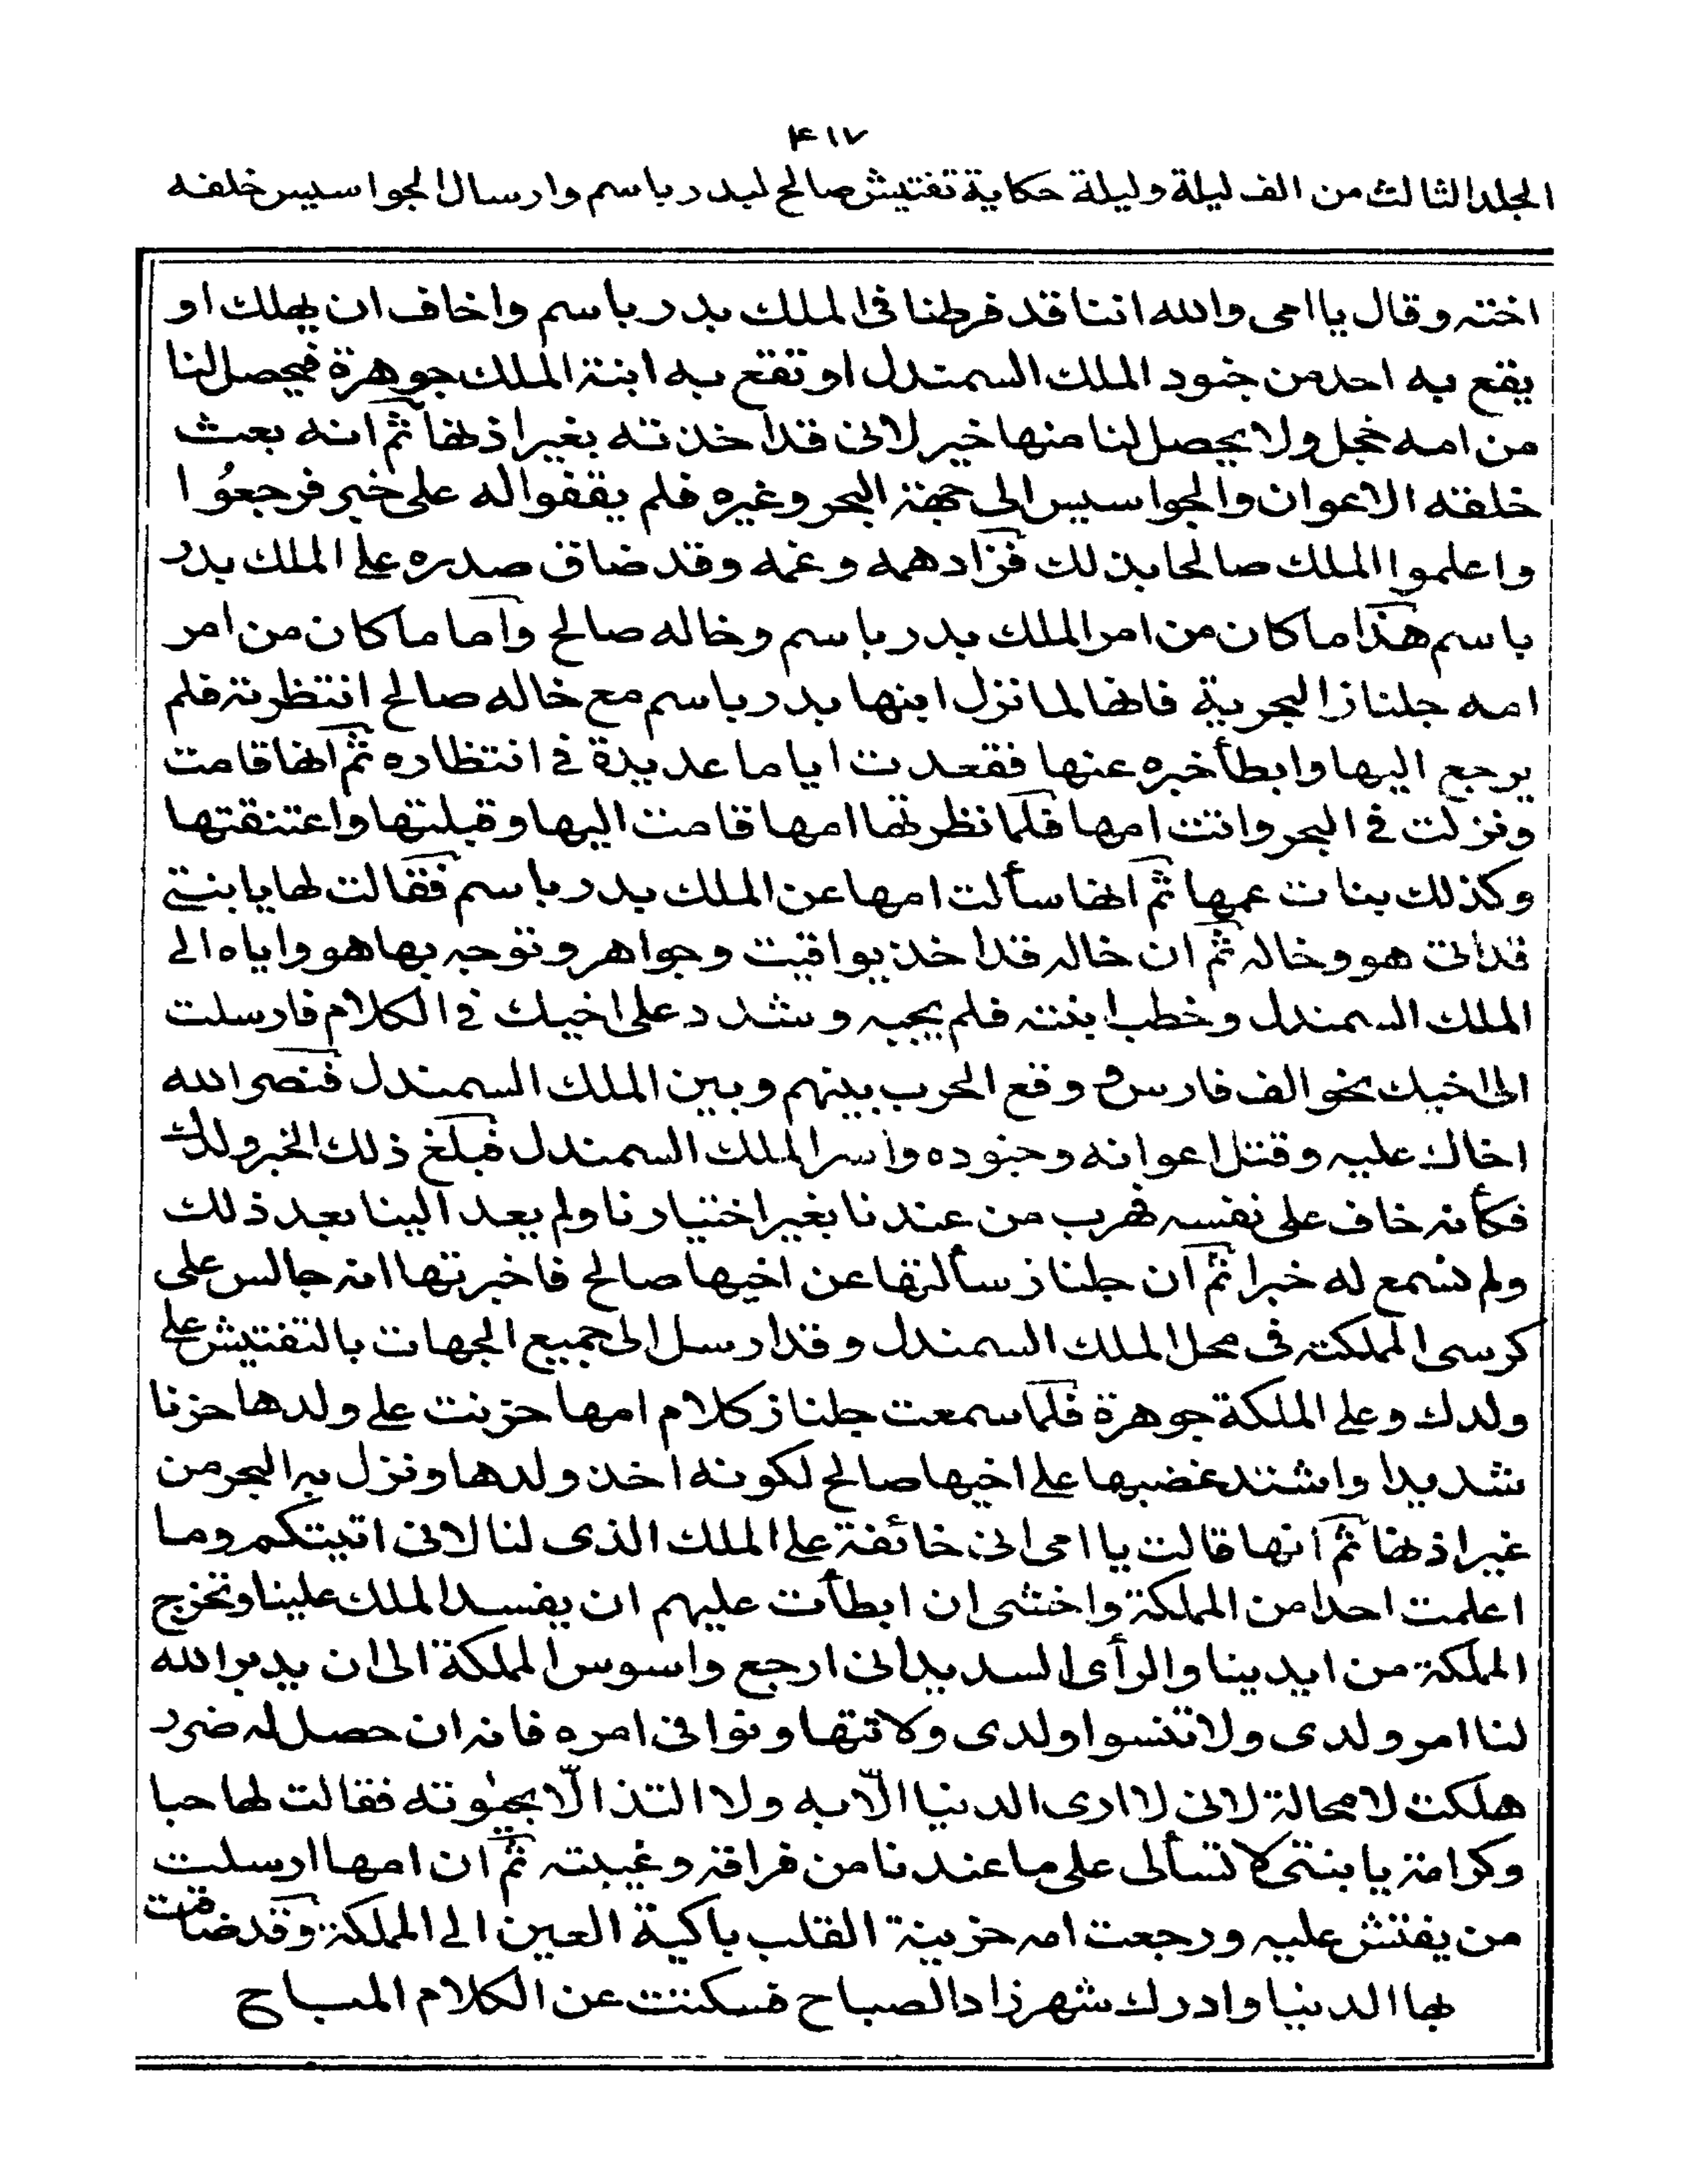 ۴۱۷
المجلد الثالث من الف ليلة وليلة حكاية تفتيش صالح لبدر باسم وارسال الجواسيس خلفه
اخته وقال يا امى والله اننا قد فرطنا فى الملك بدر باسم واخاف ان يهلك او
يقع به احد من جنود الملك السمندل او تقع به ابنة الملك جوهرة فيحصل لنا
من امه خجل ولا يحصل لنا منها خير لانى قد اخذته بغير اذنها ثم انه بعث
خلفه الاعوان والجواسيس الى جهة البحر وغيره فلم يقفوا له على خبر فرجعُوا
واعلموا الملك صالحا بذلك فزاد همه وغمه وقد ضاق صدره على الملك بدر
باسم هذا ما كان من امر الملك بدر باسم وخاله صالح وآما ما كان من امر
امه جلناز البحرية فانها لما نزل ابنها بدر باسم مع خاله صالح انتظرته فلم
يرجع اليها وابطأ خبره عنها فقعدت اياما عديدة فى انتظاره ثم انها قامت
ونزلت فى البحر واتت امها فلما نظرتها امها قامت اليها وقبلتها واعتنقتها
وكذلك بنات عمها ثم انها سألت امها عن الملك بدر باسم فقالت لها يا بنتى
قد اتى هو وخاله ثم ان خاله قد اخذ يواقيت وجواهر وتوجه بها هو واياه الى
الملك السمندل وخطب ابنته فلم يجبه وشدد على اخيك فى الكلام فارسلت
الى اخيك نحو الف فارس و وقع الحرب بينهم وبين الملك السمندل فنصر الله
اخاك عليه وقتل اعوانه وجنوده واسر الملك السمندل فبلغ ذلك الخبر ولدك
فكأنه خاف على نفسه فهرب من عندنا بغير اختيارنا ولم يعد الينا بعد ذلك
ولم نسمع له خبرا ثم ان جلناز سألتها عن اخيها صالح فاخبرتها انه جالس على
كرسى المملكة فى محل الملك السمندل وقد ارسل الى جميع الجهات بالتفتيش على
ولدك وعلى الملكة جوهرة فلما سمعت جلناز كلام امها حزنت على ولدها حزنا
شديدا واشتد غضبها على اخيها صالح لكونه اخذ ولدها ونزل به البحر من
غير اذنها ثم انها قالت يا امى انى خائفة على الملك الذى لنا لانى اتيتكم وما
اعلمت احدا من المملكة واخشى ان ابطأت عليهم ان يفسد الملك علينا وتخرج
المملكة من ايدينا والرأى السديد انى ارجع واسوس المملكة الى ان يدبر الله
لنا امر ولدى ولا تنسوا ولدى ولا تتهاونوا فى امره فانه ان حصل له ضرر
هلكت لا محالة لانى لا ارى الدنيا الّا به ولا التذ الّا بحيٰوته فقالت لها حبا
وكرامة يا بنتى لا تسألى على ما عندنا من فراقه وغيبته ثم ان امها ارسلت
من يفتش عليه ورجعت امه حزينة القلب باكية العين الى المملكة وقد ضاقت
بها الدنيا وادرك شهرزاد الصباح فسكتت عن الكلام المباح